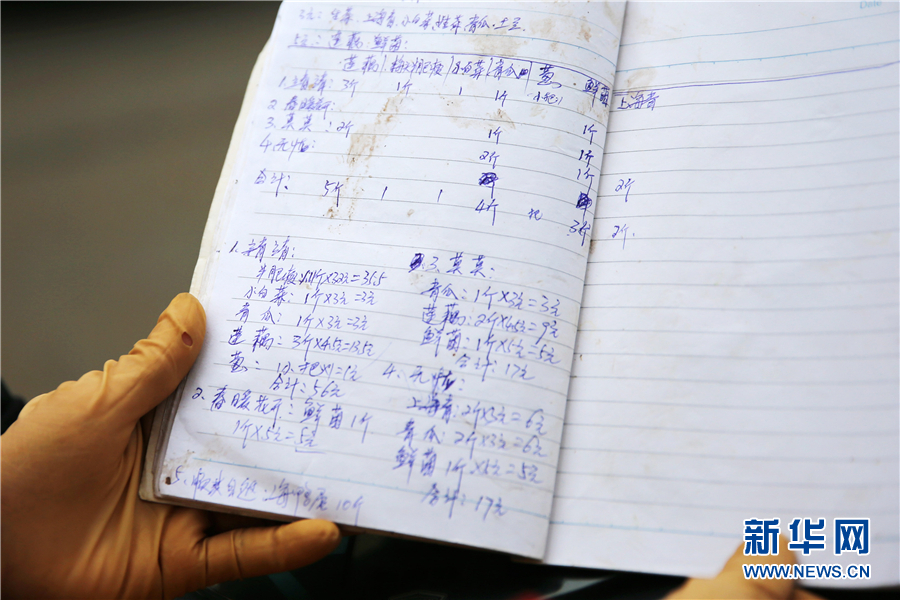 3元: 生菜. 上海青. 小白菜. 青瓜. 土豆.
5元: 莲藕. 鲜菌:
莲藕 肥 小白菜 青瓜 葱 鲜菌 上海青
1. 3斤 1斤 1 1斤 小把1
2. 春暖花开: 1斤
3. 莫莫: 2斤 1斤 1斤
4. 无 2斤 1斤 2斤
合计: 5斤 1 1 4斤 把 3斤 2斤.
1. 青青:
牛肥 斤×32元=36.5
小白菜: 1斤×3元=3元
青瓜: 1斤×3元=3元
莲藕: 3斤×4.5元=13.5元
葱: 1小把×1=1元
合计: 56元
2. 春日暖花开: 鲜菌1斤
1斤×5元=5元
5. 上海 10斤
3. 莫莫:
青瓜: 1斤×3元=3元
莲藕: 2斤×4.5元=9元
鲜菌: 1斤×5元=5元
合计: 17元
4. 无
上海青: 2斤×3元=6元
青瓜: 2斤×3元=6元
鲜菌 1斤×5元=5元
合计: 17元
Date
新华网
WWW.NEWS.CN